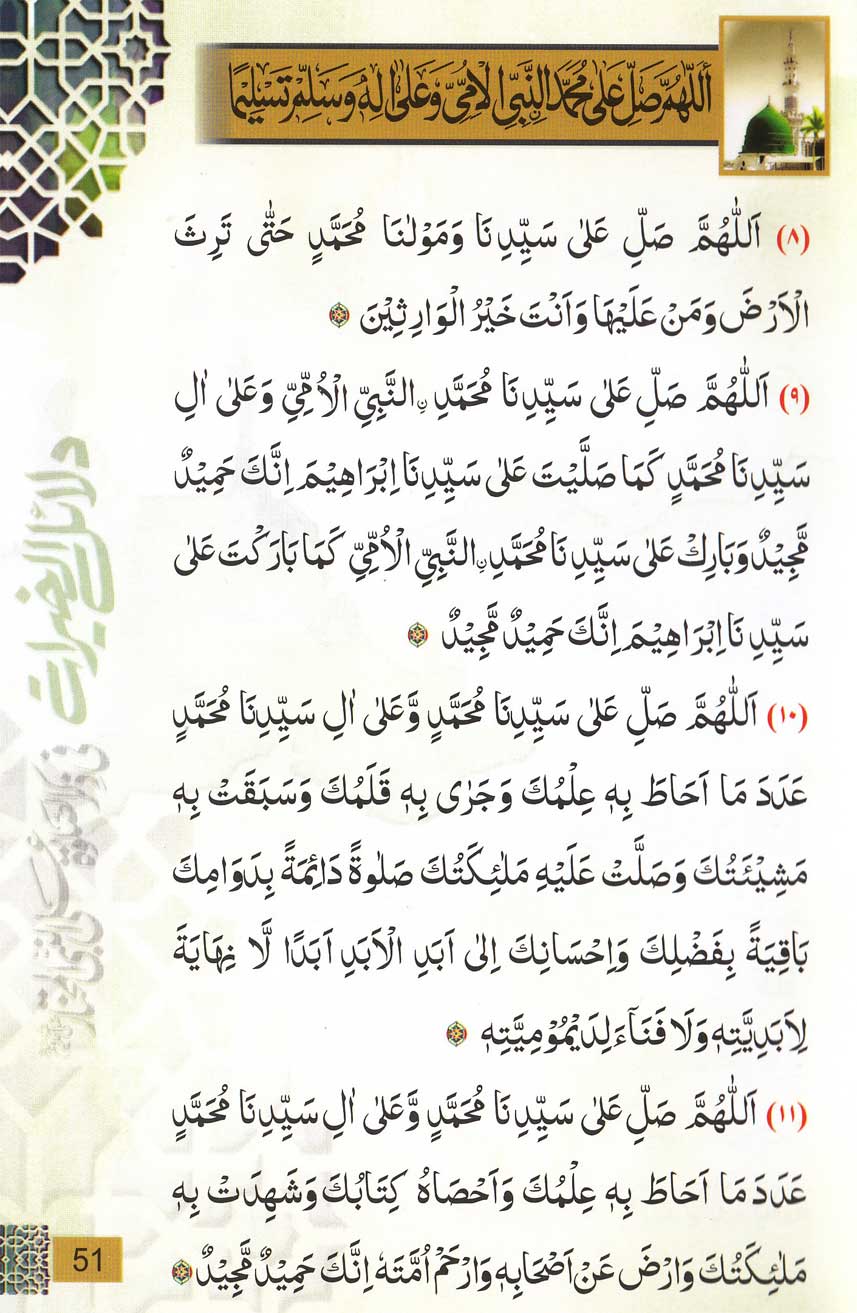 اَللّٰهُمَّ صَلِّ عَلٰى مُحَمَّدِ ۨالنَّبِيِّ الْاُمِّىِّ وَعَلٰى اٰلِهٖ وَسَلِّمْ تَسْلِيْمًا
(٨) اَللّٰهُمَّ صَلِّ عَلٰى سَيِّدِنَا وَمَوْلٰنَا مُحَمَّدٍ حَتّٰى تَرِثَ
الْاَرْضَ وَمَنْ عَلَيْهَا وَاَنْتَ خَيْرُ الْوَارِثِيْنَ
(٩) اَللّٰهُمَّ صَلِّ عَلٰى سَيِّدِنَا مُحَمَّدِ ۨالنَّبِيِّ الْاُمِّيِّ وَعَلٰى اٰلِ
سَيِّدِنَا مُحَمَّدٍ كَمَا صَلَّيْتَ عَلٰى سَيِّدِنَا اِبْرَاهِيْمَ اِنَّكَ حَمِيْدٌ
مَّجِيْدٌ وَبَارِكْ عَلٰى سَيِّدِنَا مُحَمَّدِ ۨالنَّبِيِّ الْاُمِّيِّ كَمَا بَارَكْتَ عَلٰى
سَيِّدِنَا اِبْرَاهِيْمَ اِنَّكَ حَمِيْدٌ مَّجِيْدٌ
(١٠) اَللّٰهُمَّ صَلِّ عَلٰى سَيِّدِنَا مُحَمَّدٍ وَّعَلٰى اٰلِ سَيِّدِنَا مُحَمَّدٍ
عَدَدَ مَا اَحَاطَ بِهٖ عِلْمُكَ وَجَرٰى بِهٖ قَلَمُكَ وَسَبَقَتْ بِهٖ
مَشِيْئَتُكَ وَصَلَّتْ عَلَيْهِ مَلٰئِكَتُكَ صَلٰوةً دَائِمَةً بِدَوَامِكَ
بَاقِيَةً بِفَضْلِكَ وَاِحْسَانِكَ اِلٰى اَبَدِ الْاَبَدِ اَبَدًا لَّا نِهَايَةَ
لِاَبَدِيَّتِهٖ وَلَا فَنَآءَ لِدَيْمُوْمِيَّتِهٖ
(١١) اَللّٰهُمَّ صَلِّ عَلٰى سَيِّدِنَا مُحَمَّدٍ وَّعَلٰى اٰلِ سَيِّدِنَا مُحَمَّدٍ
عَدَدَ مَا اَحَاطَ بِهٖ عِلْمُكَ وَاَحْصَاهُ كِتَابُكَ وَشَهِدَتْ بِهٖ
مَلٰئِكَتُكَ وَارْضَ عَنْ اَصْحَابِهٖ وَارْحَمْ اُمَّتَهٗ اِنَّكَ حَمِيْدٌ مَّجِيْدٌ
دلائل الخيرات
51